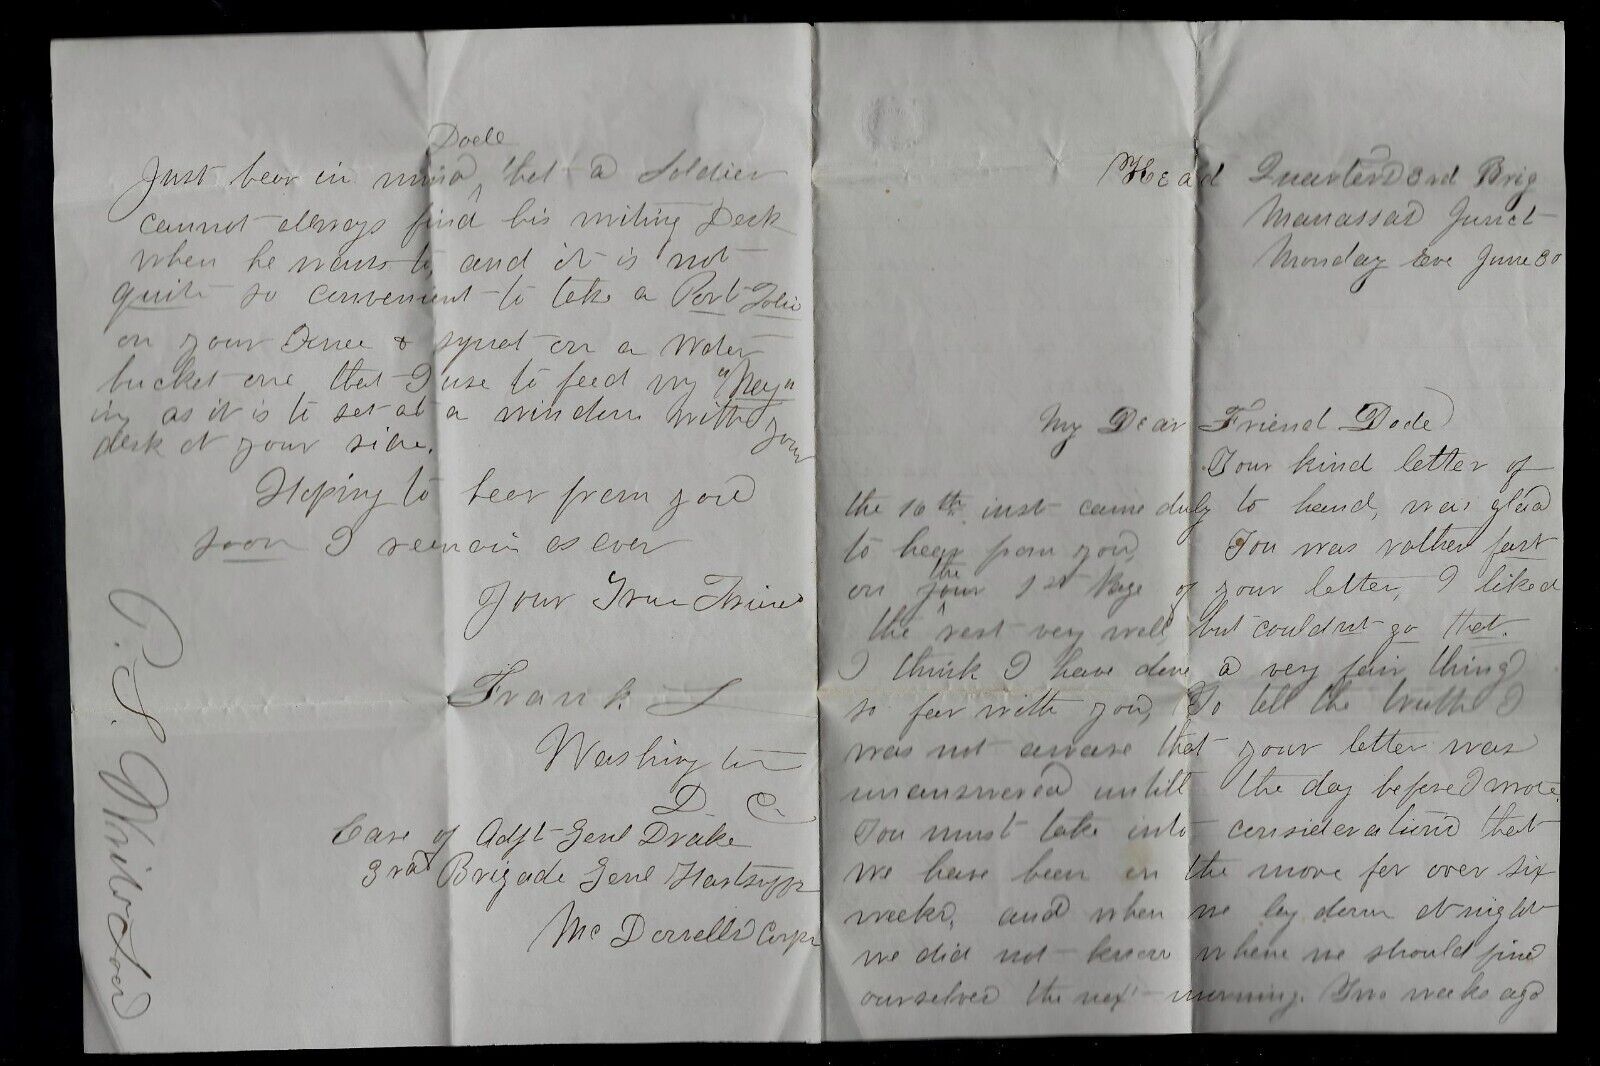 Head Quarters 3rd Brig
Manassas Junct
Monday Eve June 30
My Dear Friend Dode
Your kind letter of
the 16th inst came duly to hand, was glad
to hear from you, You was rather fast
on your the 1st Page of your letter, I liked
the rest very well but couldnt go that.
I think I have done a very fair thing
so far with you, To tell the truth I
was not aware that your letter was
unanswered untill the day before I wrote.
You must take into consideration that
we have been on the move for over six
weeks, and when we lay down at night
we did not know where we should find
ourselves the next morning. Two weeks ago
Dode
Just bear in mind that a Soldier
cannot always find his writing Desk
when he wants to, and it is not
quite so convenient to take a Port Folio
on your Knee & squat on a Water
bucket one that I use to feed my "Neg"
in, as it is to set at a window with your
desk at your side.
Hoping to hear from you
soon I remain as ever
Your True Friend
Frank S
Washington
D. C.
Care of Adjt Genl Drake
3rd Brigade Genl Hartsuff
McDowells Corps
P. S. Write Soon